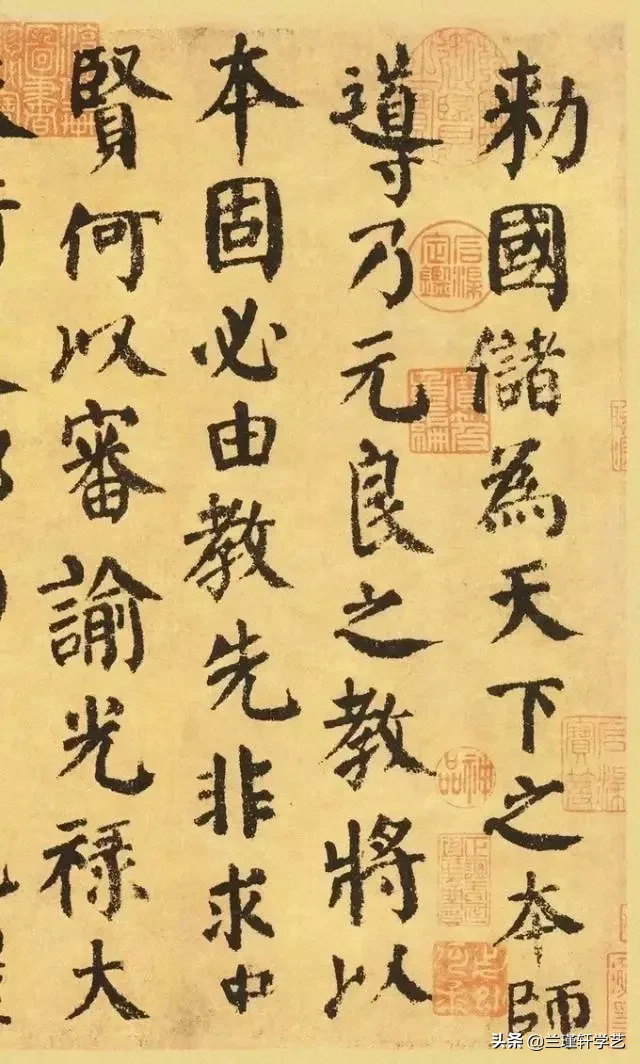 勅國儲為天下之本師
導乃元良之教將以
本固必由教先非求中
賢何以審諭光禄大
神品
头条 @兰瑾轩学艺